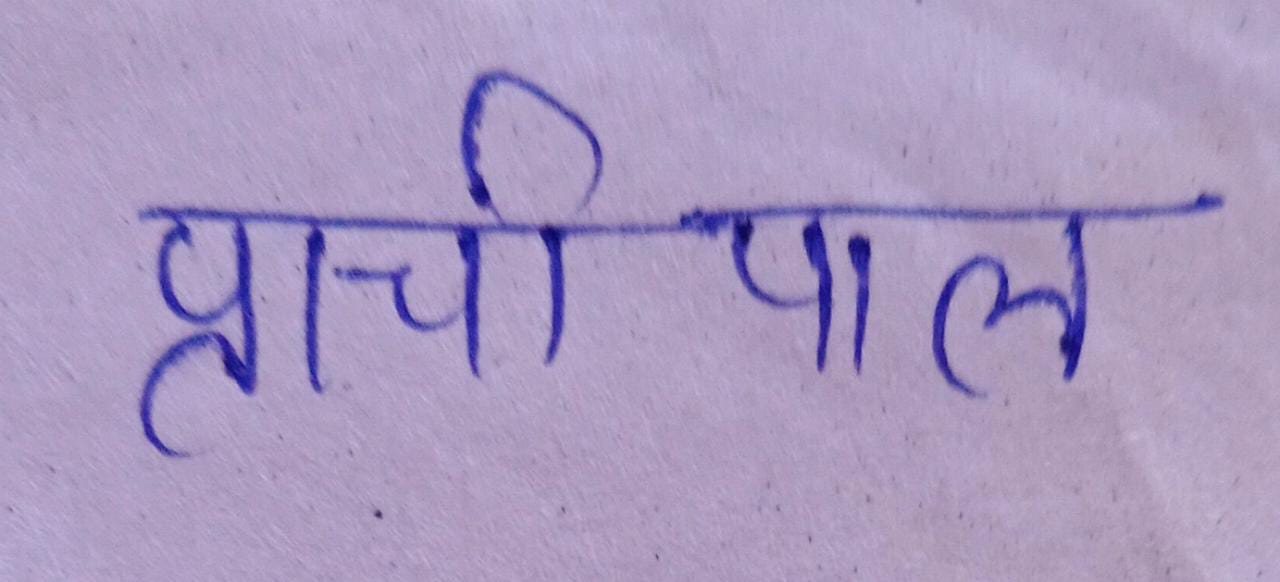 प्राची पाल